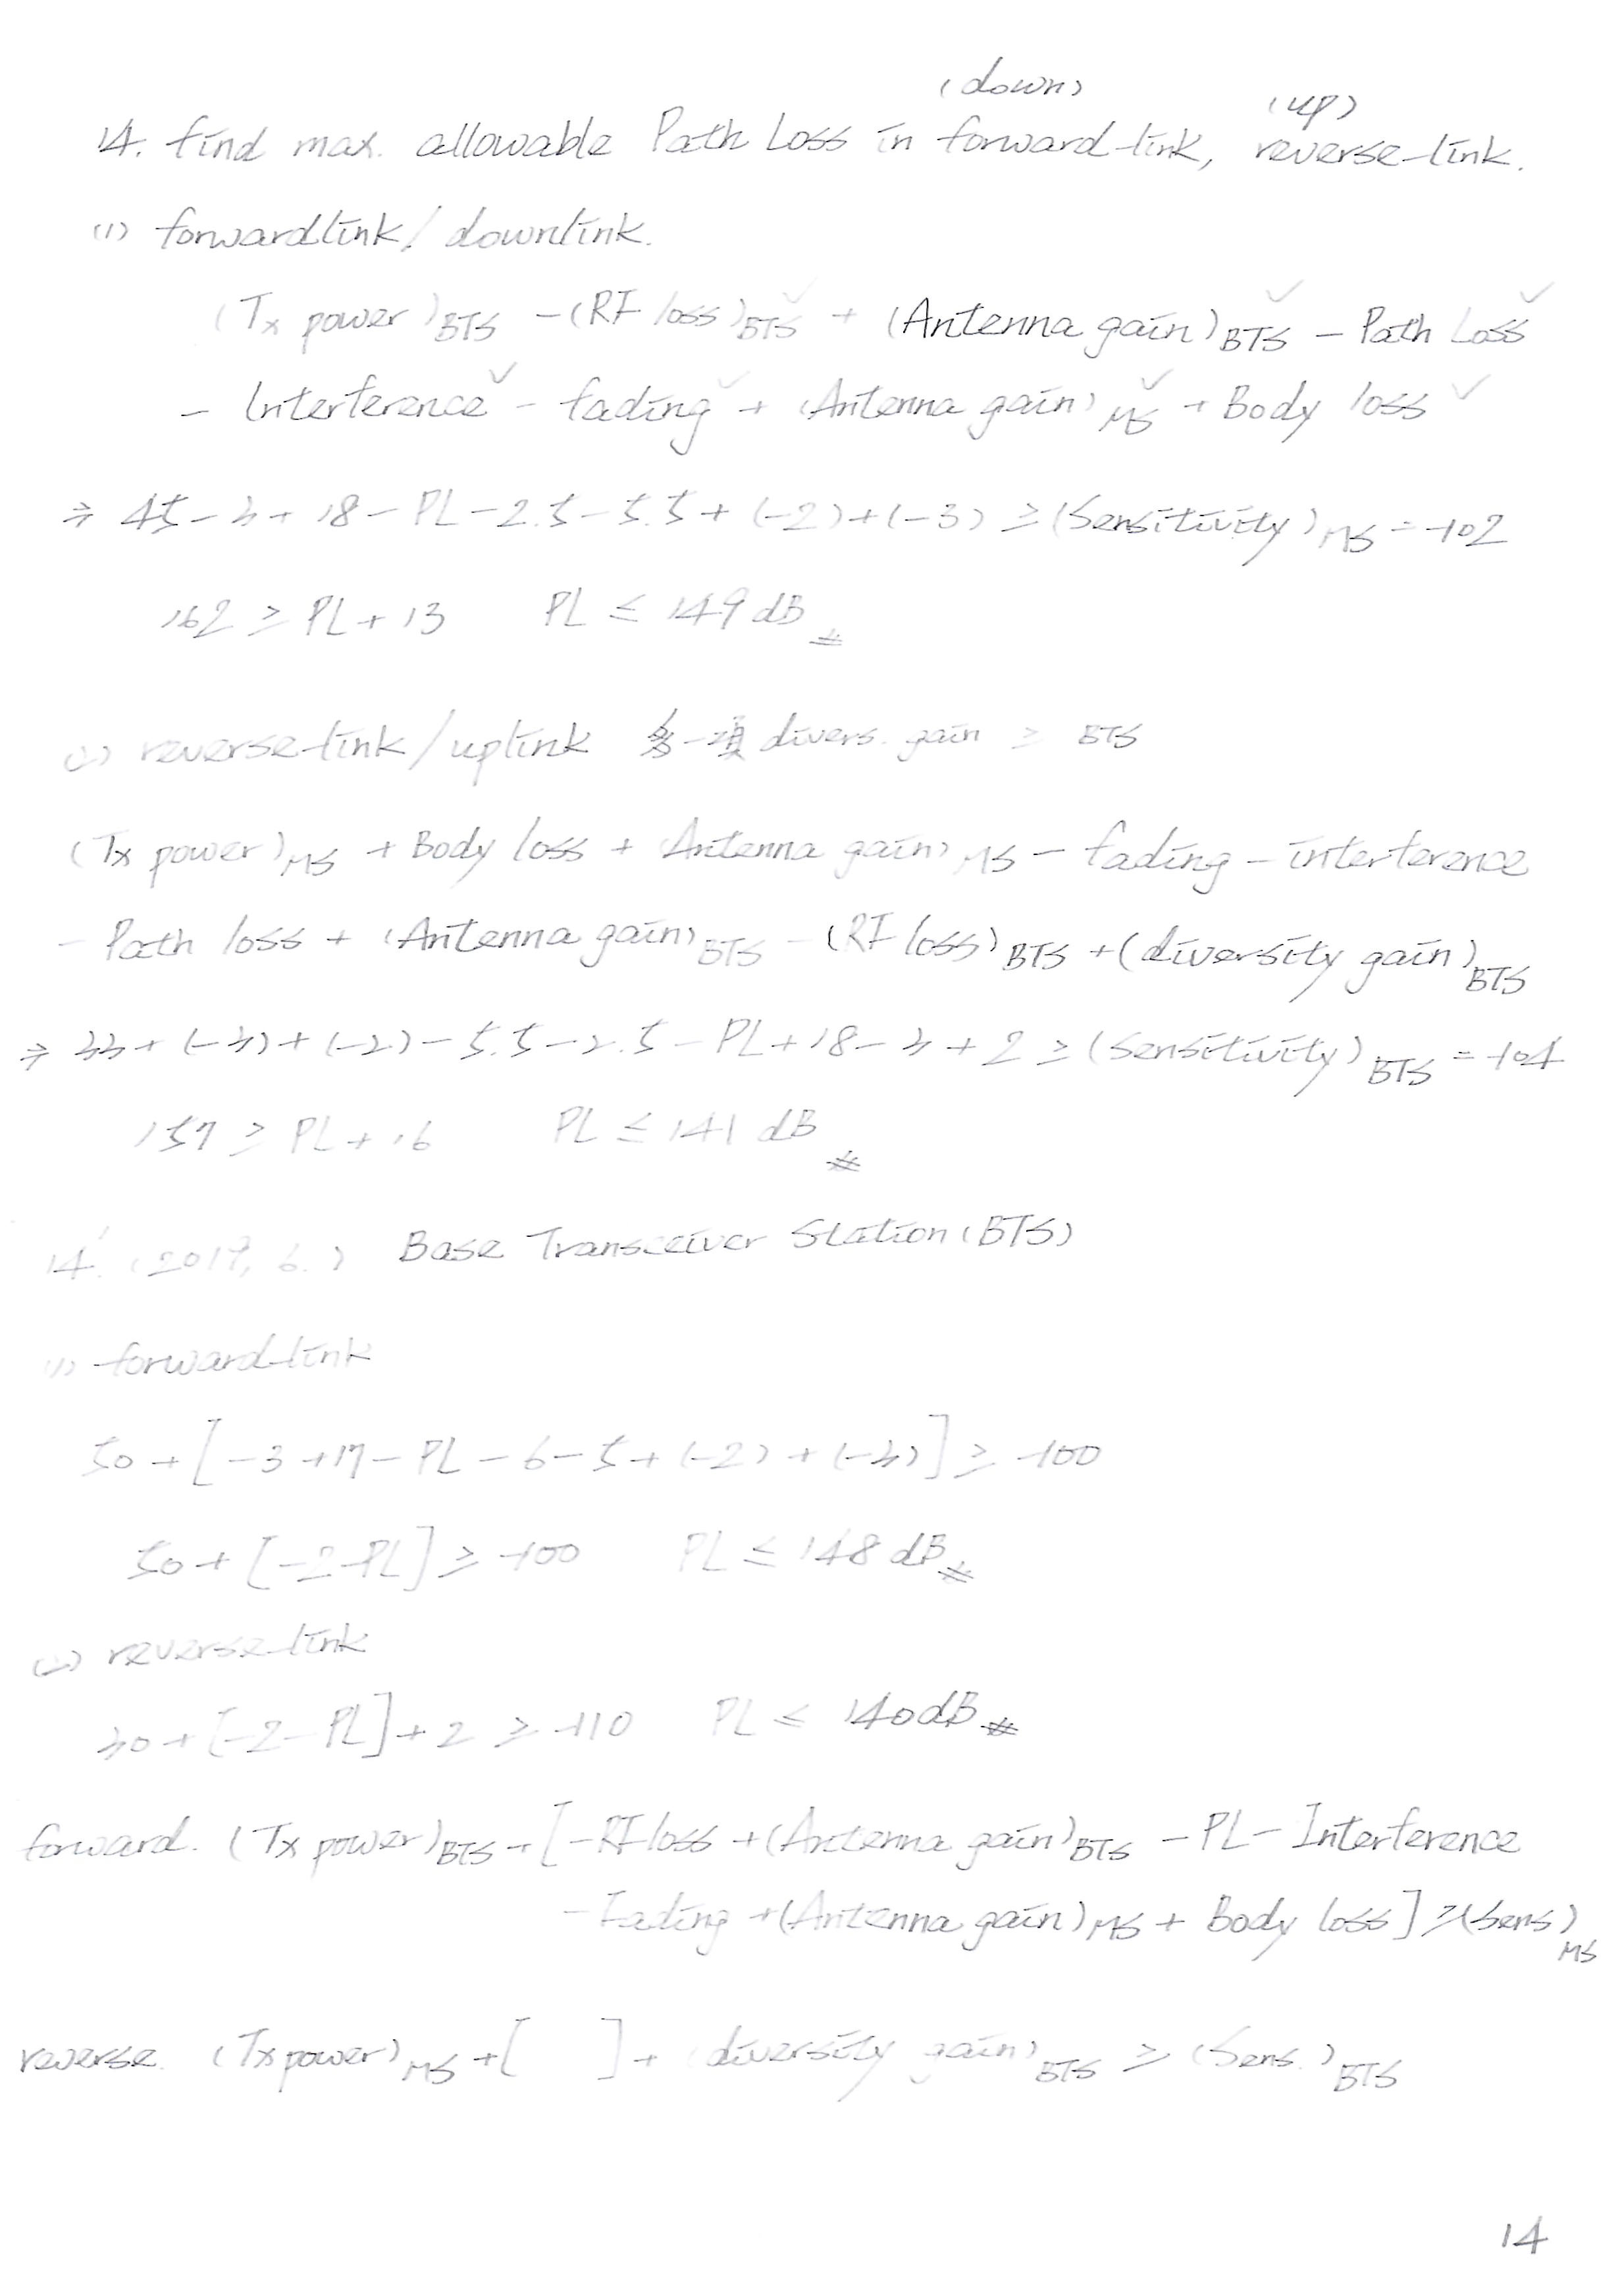 (down)
(up)
14. find max. allowable Path Loss in forward-link, reverse-link.
(1) forwardlink / downlink.
(Tx power)BTS - (RF loss)BTS + (Antenna gain)BTS - Path Loss
- Interference - fading + (Antenna gain)MS + Body loss
⇒ 45 - 3 + 18 - PL - 2.5 - 5.5 + (-2) + (-3) ≥ (Sensitivity)MS = -102
162 ≥ PL + 13 PL ≤ 149 dB #
(2) reverse-link / uplink 多一項 divers. gain ≥ BTS
(Tx power)MS + Body loss + (Antenna gain)MS - fading - interference
- Path loss + (Antenna gain)BTS - (RF loss)BTS + (diversity gain)BTS
⇒ 33 + (-3) + (-2) - 5.5 - 2.5 - PL + 18 - 3 + 2 ≥ (Sensitivity)BTS = -104
157 ≥ PL + 16 PL ≤ 141 dB #
14'. (2017, 6.) Base Transceiver Station (BTS)
(1) forward-link
50 + [-3 + 17 - PL - 6 - 5 + (-2) + (-3)] ≥ -100
50 + [-2 - PL] ≥ -100 PL ≤ 148 dB #
(2) reverse-link
30 + [-2 - PL] + 2 ≥ -110 PL ≤ 140 dB #
forward. (Tx power)BTS + [-RF loss + (Antenna gain)BTS - PL - Interference
- Fading + (Antenna gain)MS + Body loss] ≥ (Sens)MS
reverse. (Tx power)MS + [ ] + (diversity gain)BTS ≥ (Sens.)BTS
14